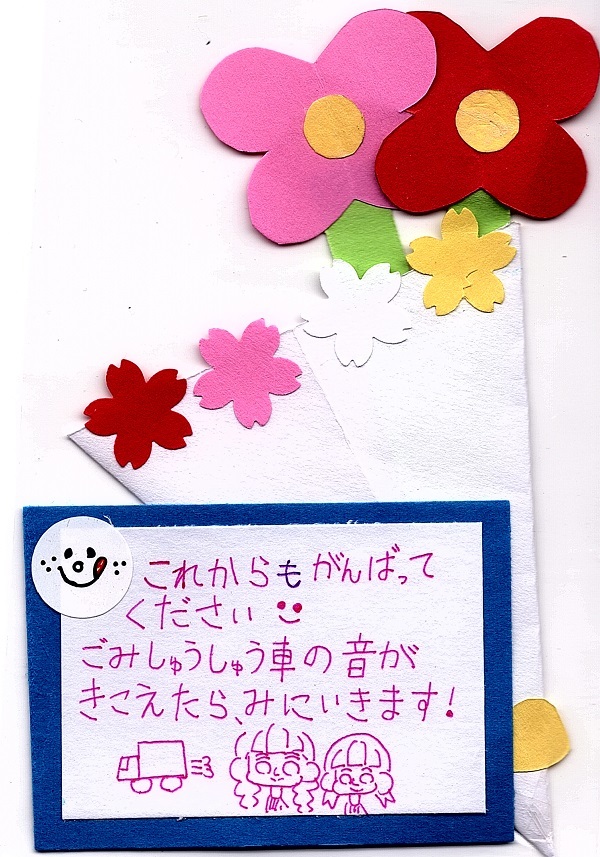 これからもがんばって
ください
ごみしゅうしゅう車の音が
きこえたら、みにいきます!